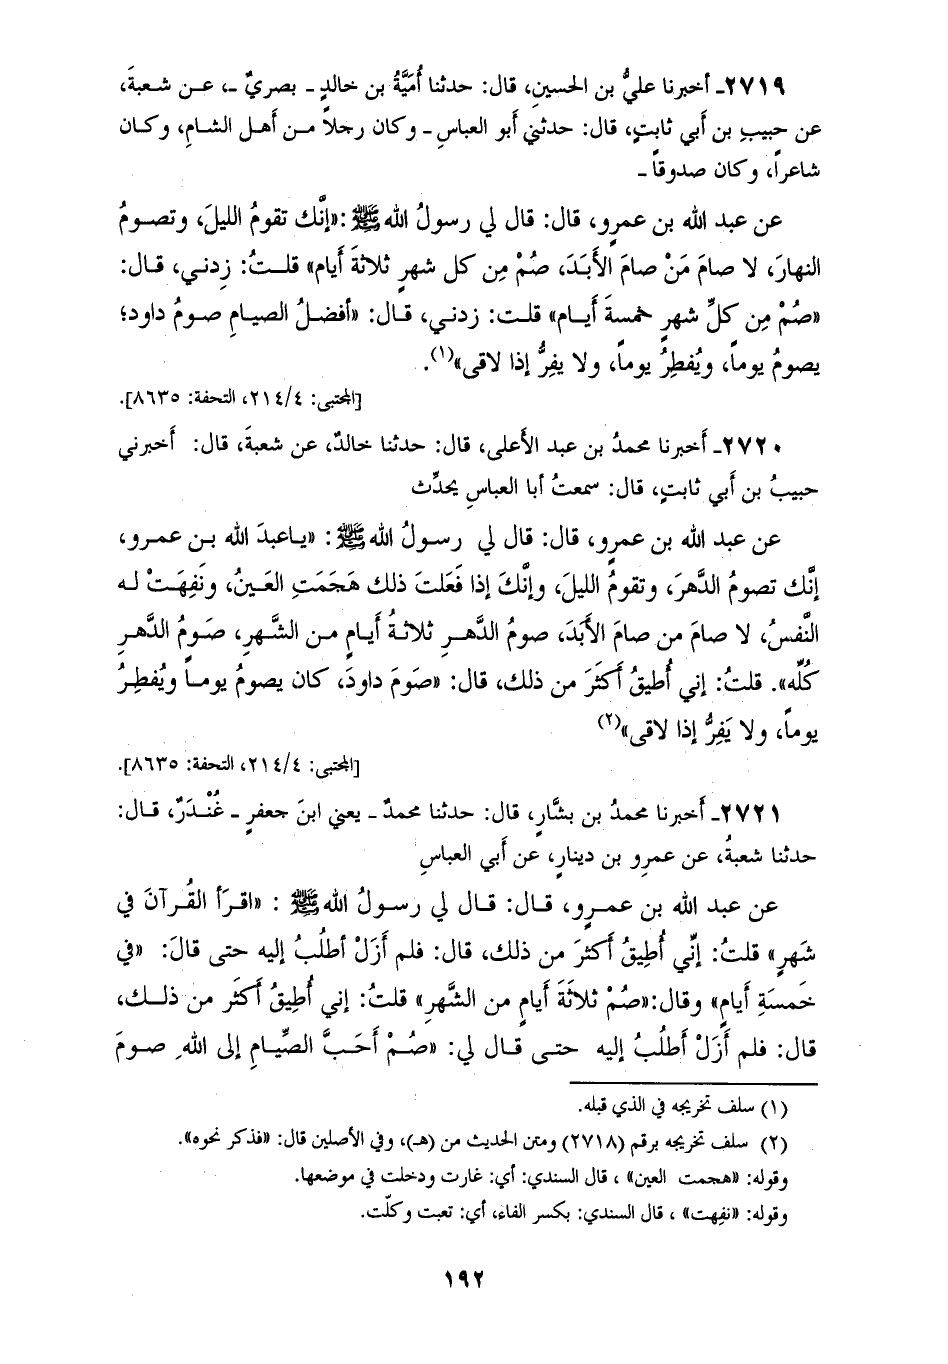 ٢٧١٩ـ أخبرنا عليُّ بن الحسينِ، قال: حدثنا أُمَيَّةُ بن خالدٍ ـ بصريٌّ ـ، عـن شعبةَ،
عن حبيبِ بن أَبي ثابتٍ، قال: حدثني أبو العباسِ ـ وكان رجلاً مـن أهـل الشـام، وكـان
شاعراً، وكان صدوقاً ـ
عن عبد الله بن عمرٍو، قال: قال لي رسولُ الله ﷺ: «إنَّك تقومُ الليلَ، وتصـومُ
النهارَ، لا صامَ مَنْ صامَ الأَبَدَ، صُمْ مِن كل شهرٍ ثلاثةَ أَيام» قلـتُ: زِدني، قـال:
«صُمْ مِن كلِّ شهرٍ خمسةَ أَيـام» قلـت: زدني، قـال: «أفضـلُ الصيـام صـومُ داود؛
يصومُ يوماً، ويُفطِرُ يوماً، ولا يفِرُّ إذا لاقى»(١).
[المجتبى: ٢١٤/٤، التحفة: ٨٦٣٥].
٢٧٢٠ـ أَخبرنا محمدُ بن عبد الأَعلى، قال: حدثنا خالدٌ، عن شعبةَ، قال: أَخبرني
حبيبُ بن أَبي ثابتٍ، قال: سمعتُ أبا العباسِ يحدِّث
عن عبد الله بن عمرٍو، قال: قال لي رسـولُ الله ﷺ: «يـاعبدَ الله بـن عمـرو،
إنَّك تصومُ الدَّهرَ، وتقومُ الليلَ، وإنَّكَ إذا فَعَلتَ ذلك هَجَمَتِ العَينُ، ونَفِهَتْ لـه
النَّفسُ، لا صامَ من صامَ الأَبَدَ، صومُ الدَّهـرِ ثلاثـةُ أَيـامٍ مـن الشَّهرِ، صَـومُ الدَّهرِ
كُلِّه». قلتُ: إني أُطيقُ أَكثَرَ من ذلك، قال: «صَومَ داودَ، كان يصومُ يومـاً ويُفطِرُ
يوماً، ولا يَفِرُّ إذا لاقى»(٢)
[المجتبى: ٢١٤/٤، التحفة: ٨٦٣٥].
٢٧٢١ـ أَخبرنا محمدُ بن بشَّارٍ، قال: حدثنا محمدٌ ـ يعني ابنَ جعفرٍ ـ غُنْدَرٌ، قـال:
حدثنا شعبةُ، عن عمرِو بن دينارٍ، عن أَبي العباسِ
عن عبد الله بن عمـرٍو، قـال: قـال لي رسـولُ الله ﷺ : «اقـرَأ القُـرآنَ في
شَهرٍ» قلتُ: إنِّي أُطِيقُ أَكثَرَ من ذلك، قال: فلم أَزَلْ أطلُبُ إليه حتى قالَ: «في
خَمسَةِ أَيامٍ» وقال:«صُمْ ثلاثَةَ أَيامٍ من الشَّهرِ» قلتُ: إني أُطِيقُ أَكثَر من ذلـك،
قال: فلم أَزَلْ أَطلُبُ إليه حتـى قـال لي: «صُـمْ أَحَـبَّ الصِّيـامِ إلى الله، صـومَ
(١) سلف تخريجه في الذي قبله.
(٢) سلف تخريجه برقم (٢٧١٨) ومتن الحديث من (هـ)، وفي الأصلين قال: «فذكر نحوه».
وقوله: «هجمت العين» ، قال السندي: أي: غارت ودخلت في موضعها.
وقوله: «نفِهت» ، قال السندي: بكسر الفاء، أي: تعبت وكلّت.
١٩٢